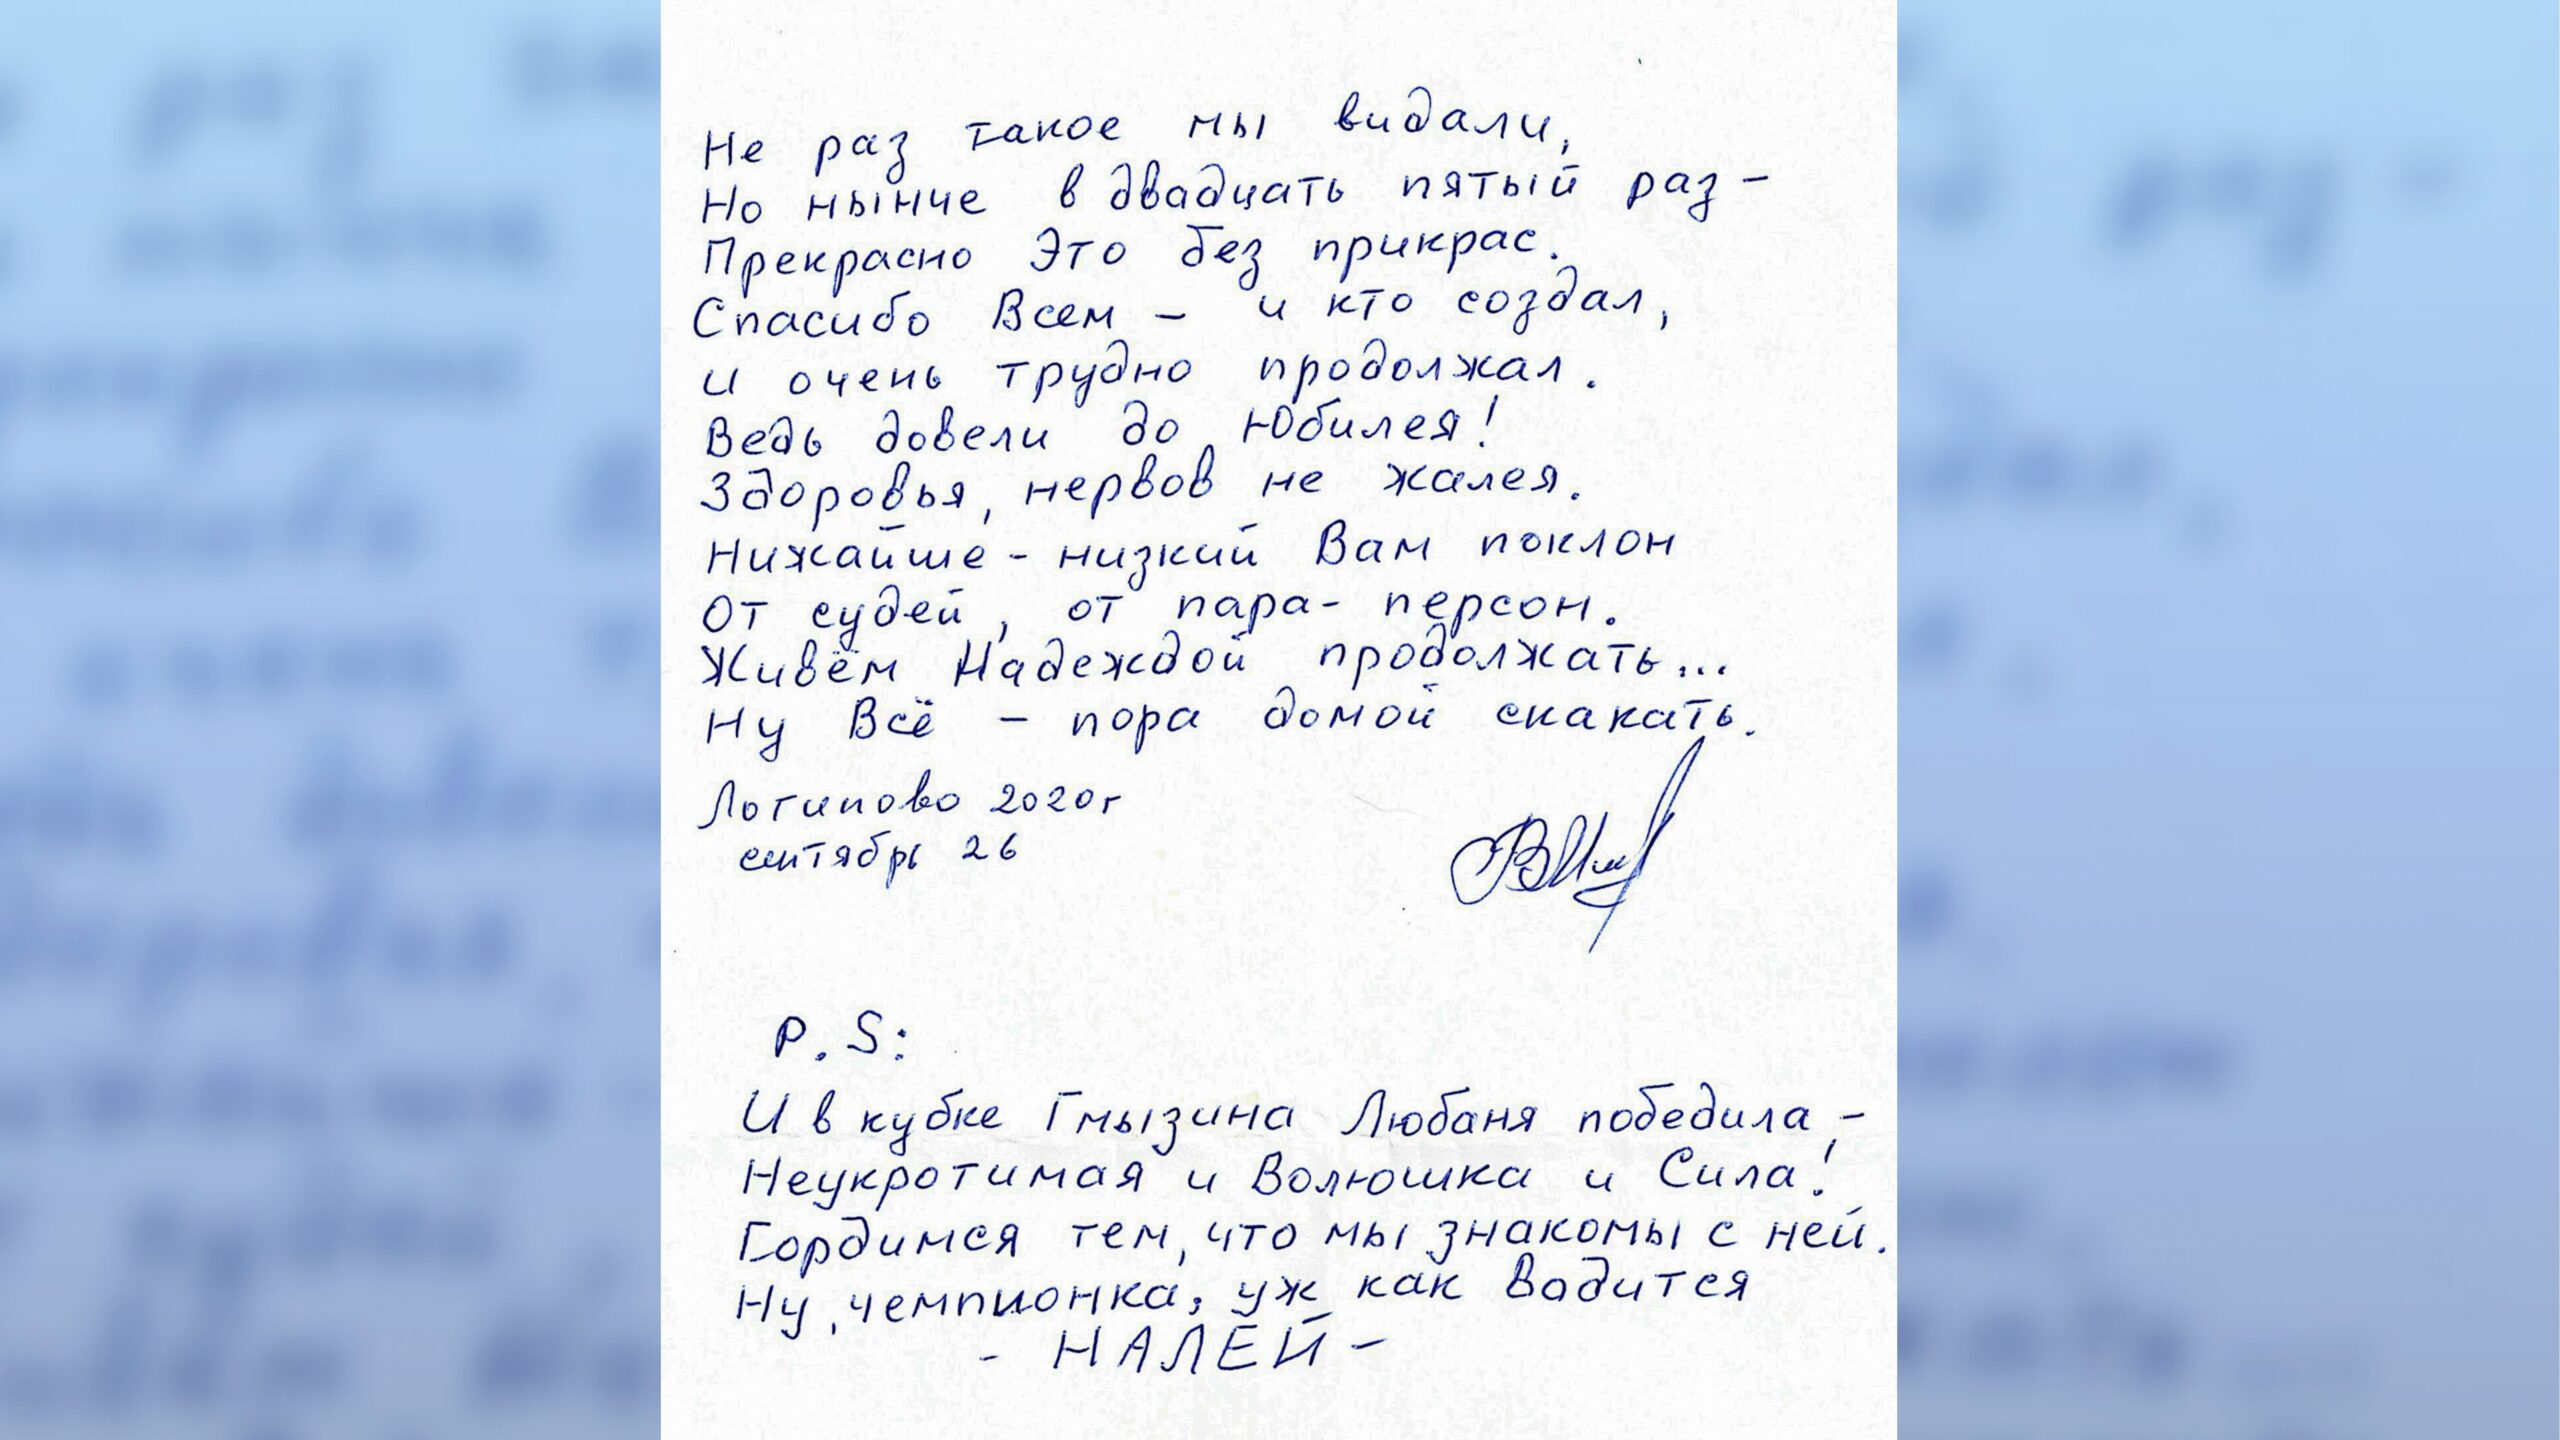 Не раз такое мы видали,
Но нынче в двадцать пятый раз -
Прекрасно Это без прикрас.
Спасибо Всем - и кто создал,
и очень трудно продолжал.
Ведь довели до Юбилея!
Здоровья, нервов не жалея.
Нижайше - низкий Вам поклон
От судей, от пара- персон.
Живём Надеждой продолжать...
Ну Всё - пора домой скакать.
Логиново 2020г
сентябрь 26
P.S:
И в кубке Гмызина Любаня победила, -
Неукротимая и Волюшка и Сила!
Гордимся тем, что мы знакомы с ней.
Ну, чемпионка, уж как Водится
- НАЛЕЙ -